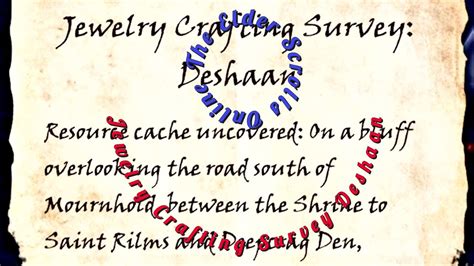 Jewelry Crafting Survey:
Deshaan
Resource cache uncovered: On a bluff
overlooking the road south of
Mournhold between the Shrine to
Saint Rilms and Deepcrag Den,
The Elder Scrolls Online
Jewelry Crafting Survey Deshaan